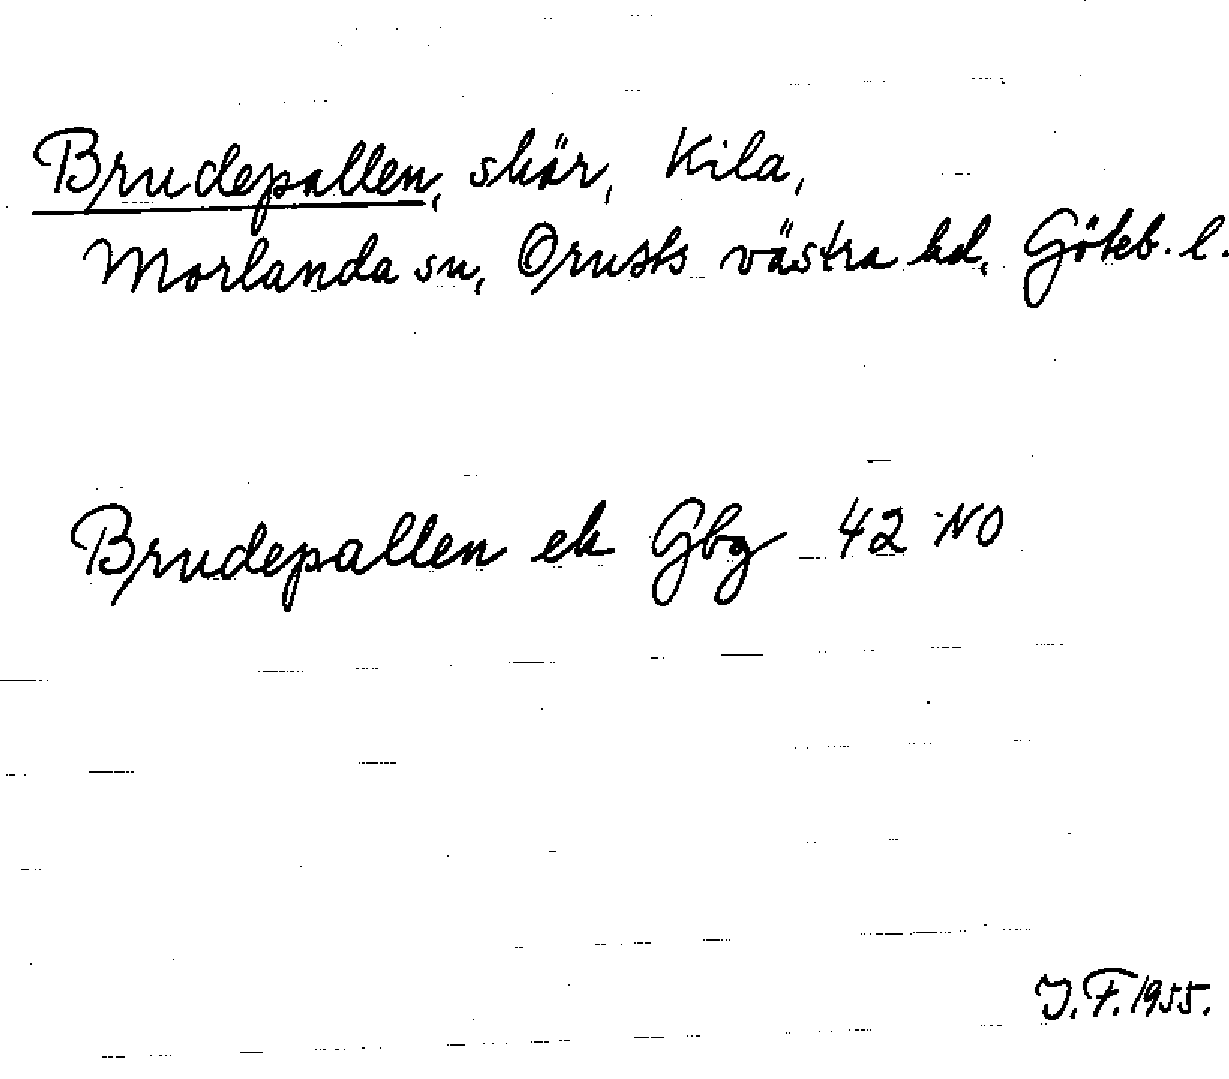 Brudepallen, skär, Kila,
Morlanda sn, Orusts västra hd, Göteb. l.
Brudepallen ek Gbg 42 NO
J.F. 1955.